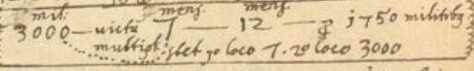 mil. mens. mens.
3000 — victu 7 — 12 — 1750 militibg
multipl: stet 70 loco 7. 20 loco 3000